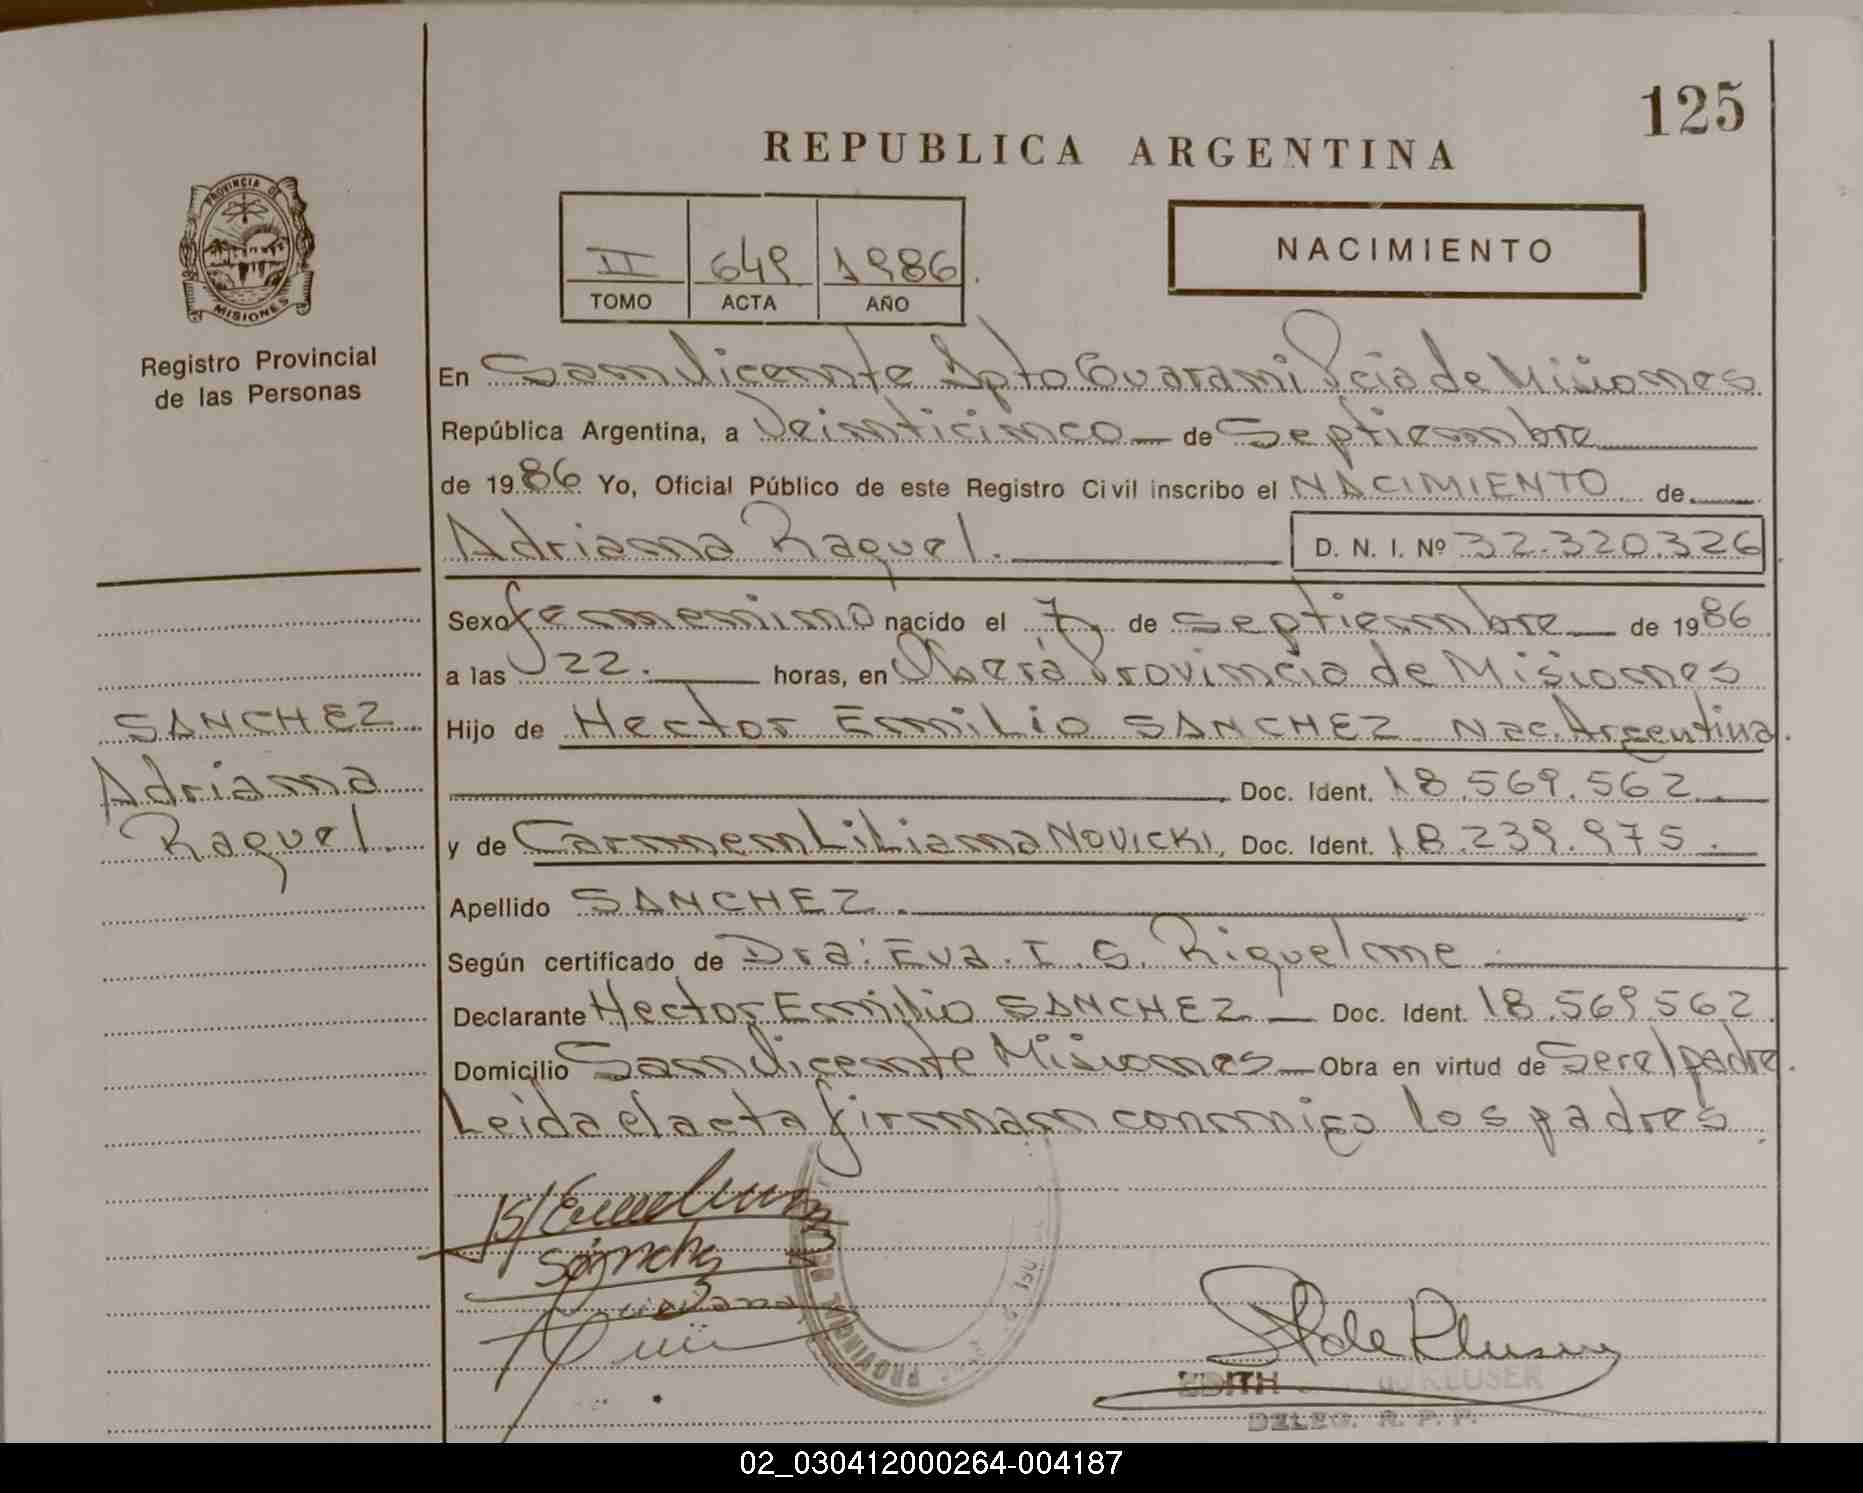 125
REPUBLICA ARGENTINA
PROVINCIA DE
MISIONES
Registro Provincial
de las Personas
II 649 1986
TOMO ACTA AÑO
NACIMIENTO
En San Vicente Dpto Guarani Pcia de Misiones
República Argentina, a Veinticinco de Septiembre
de 1986 Yo, Oficial Público de este Registro Civil inscribo el NACIMIENTO de
Adriana Raquel. D. N. I. Nº 32.320.326
Sexo femenino nacido el 7 de Septiembre de 1986
a las 22. horas, en Oberá Provincia de Misiones
Hijo de Hector Emilio SANCHEZ Nac. Argentina.
Doc. Ident. 18.569.562.
y de Carmen Liliana NOVICKI, Doc. Ident. 18.239.975.
Apellido SANCHEZ.
Según certificado de Dra: Eva. I. G. Riquelme
Declarante Hector Emilio SANCHEZ Doc. Ident. 18.569.562.
Domicilio San Vicente Misiones Obra en virtud de Ser el padre.
Leida el acta firman conmigo los padres.
SANCHEZ
Adriana
Raquel.
Sanchez
PROVINCIAL
EDITH KLUSER
DELEG. R. P. P.
02_030412000264-004187